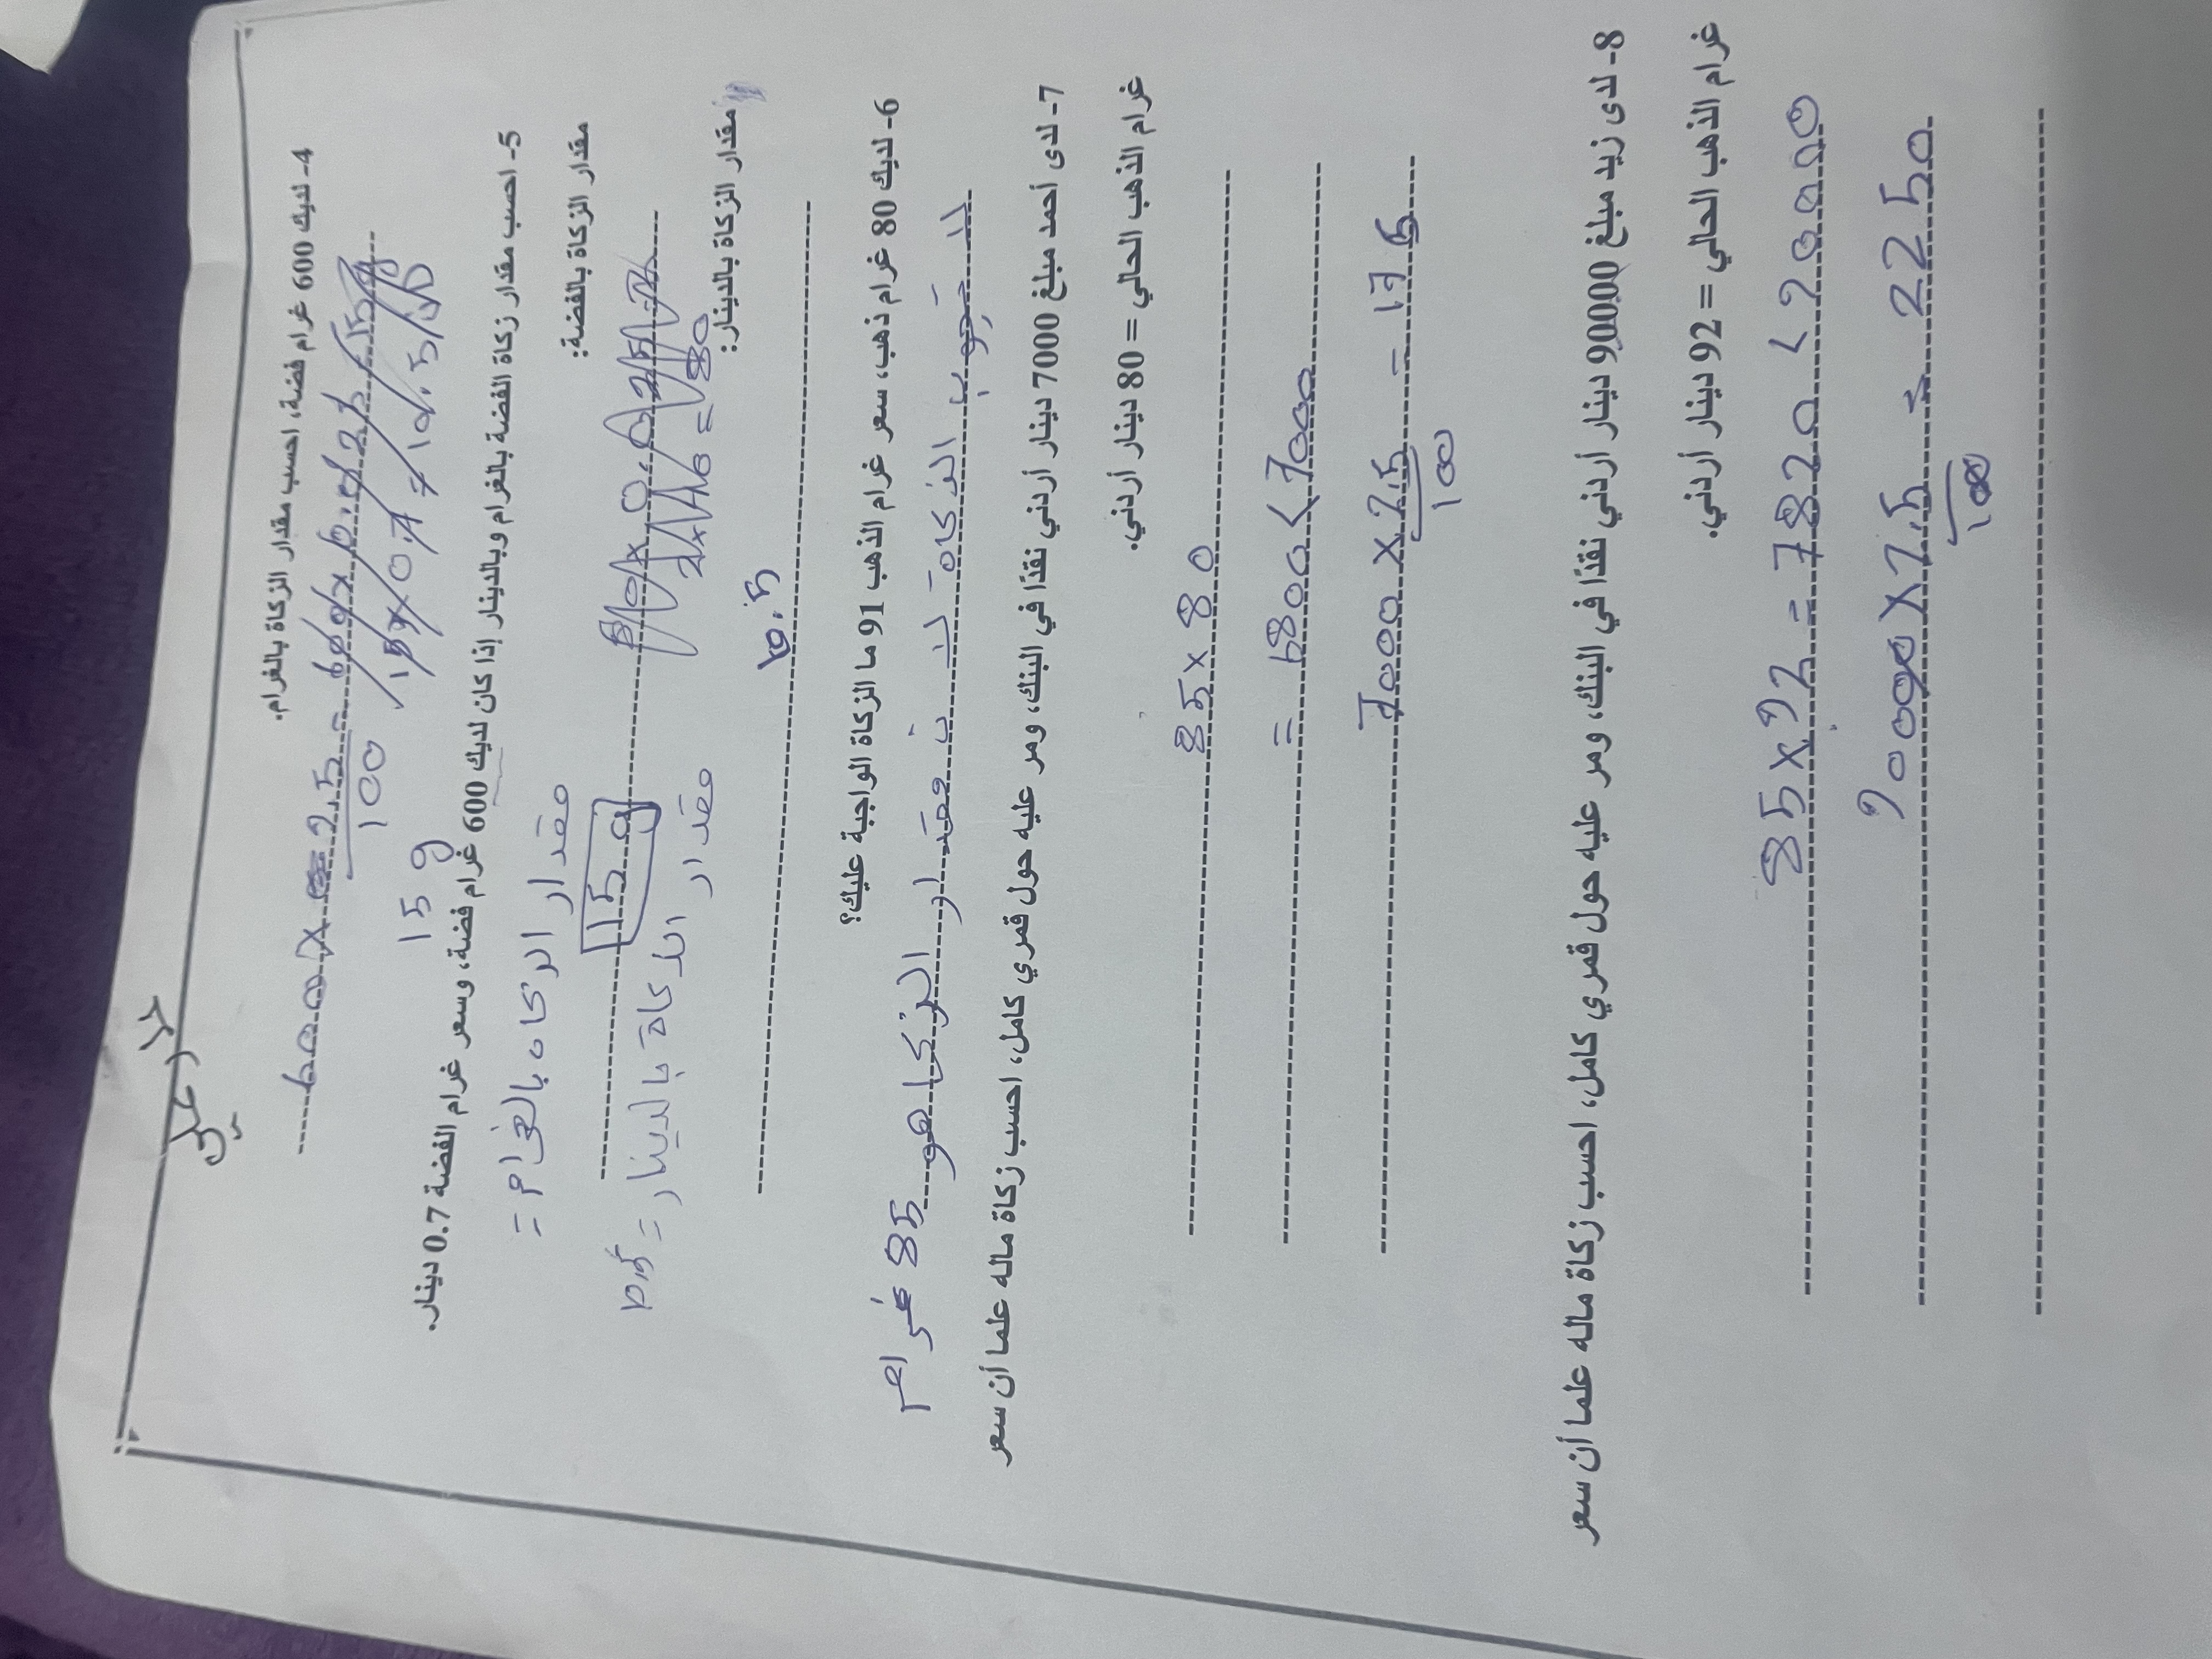 4- لديك 600 غرام فضة، احسب مقدار الزكاة بالغرام.
600 × 2.5 =
100
15 g
5- احسب مقدار زكاة الفضة بالغرام وبالدينار إذا كان لديك 600 غرام فضة، وسعر غرام الفضة 0.7 دينار.
مقدار الزكاة بالفضة:
= مقدار الزكاه بالغرام
15 g
مقدار الزكاة بالدينار:
= مقدار الزكاة بالدينار
6- لديك 80 غرام ذهب، سعر غرام الذهب 91 ما الزكاة الواجبة عليك؟
لا تجوب الزكاة لان مقدار الزكا هو 85 غرام
7- لدى أحمد مبلغ 7000 دينار أردني نقدًا في البنك، ومر عليه حول قمري كامل، احسب زكاة ماله علما أن سعر
غرام الذهب الحالي = 80 دينار أردني.
85 × 80
= 6800 < 7000
7000 × 2.5 = 175
100
8- لدى زيد مبلغ 90000 دينار أردني نقدًا في البنك، ومر عليه حول قمري كامل، احسب زكاة ماله علما أن سعر
غرام الذهب الحالي = 92 دينار أردني.
85 × 92 = 7820 < 90000
90000 × 2.5 = 2250
100